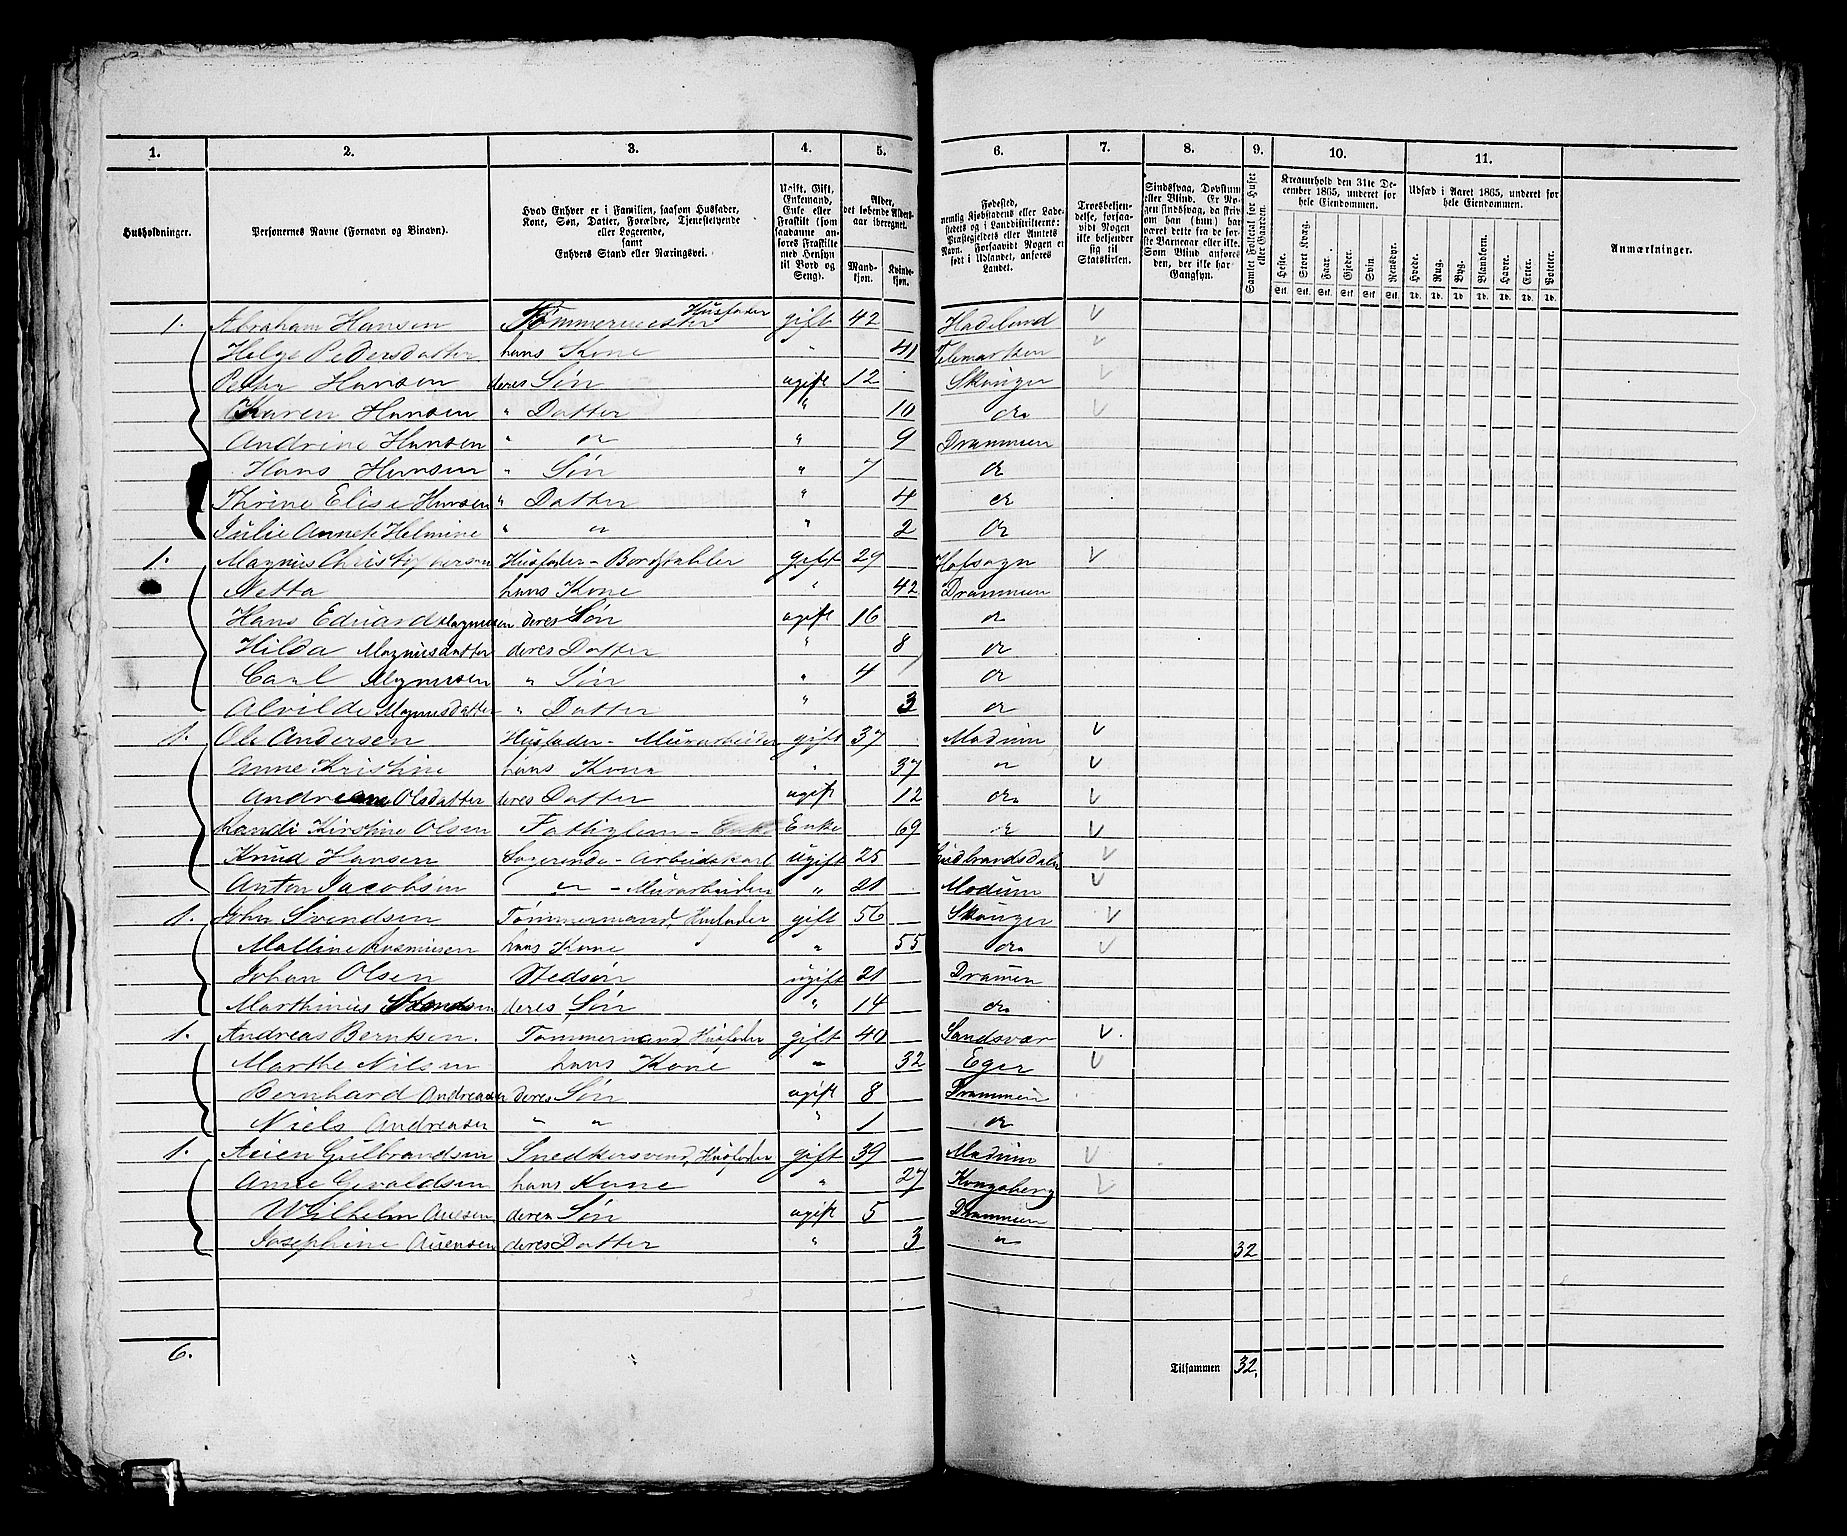 1. 2. 3. 4. 5. 6. 7. 8. 9. 10. 11.
Husholdninger.
Personernes Navne (Fornavn og Binavn).
Hvad Enhver er i Familien, saasom Husfader, Kone, Søn, Datter, Forældre, Tjenestetyende eller Logerende, samt Enhvers Stand eller Næringsvei.
Ugift, Gift, Enkemand, Enke eller Fraskilt (som saadanne anføres Fraskilte med Hensyn til Bord og Seng).
Alder, det løbende Aldersaar iberegnet.
Mandkjøn. Kvindekjøn.
Fødested, nemlig Kjøbstadens eller Ladestedets og i Landdistrikterne: Præstegjeldets eller Annexets Navn. Forsaavidt Nogen er født i Udlandet, anføres Landet.
Troesbekjendelse, forsaavidt Nogen ikke bekjender sig til Statskirken.
Sindssvag, Døvstum eller Blind. Er Nogen sindssvag, da skrives om han (hun) har været dette fra de første Barneaar eller ikke. Som Blind anføres den, der ikke har Gangsyn.
Samlet Folketal for Huset eller Gaarden.
Kreaturhold den 31te December 1865, underet for hele Eiendommen.
Heste. Stort Kvæg. Faar. Gjeder. Svin Rensdyr.
Stk. Stk. Stk. Stk. Stk. Stk.
Udsæd i Aaret 1865, underet for hele Eiendommen.
Hvede. Rug. Byg. Blandkorn. Havre. Erter. Poteter.
Td. Td. Td. Td. Td. Td. Td.
Anmærkninger.
1. Abraham Hansen Tømmermester Husfader gift 42 Hadeland
Helge Pedersdatter hans Kone " 41 Telemarken
Hansen deres Søn ugift 12 Skouger
Karen Hansen " Datter " 10 do
Andrine Hansen " do " 9 Drammen
Hans Hansen " Søn " 7 do
Thrine Elise Hansen " Datter " 4 do
Julie Annete Helmine " " " 2 do
1. Magnus Christophersen Husfader - gift 29 Hofsogn
Netta hans Kone " 42 Drammen
Hans Edvard Magnusen deres Søn ugift 16 do
Hilda Magnusdatter deres Datter " 8 do
Carl Magnusen " Søn " 4 do
Alvilde Magnusdatter " Datter " 3 do
1. Ole Andersen Husfader - Murarbeider gift 37 Modum
Anne Kristine hans Kone " 37 do
Olsdatter deres Datter ugift 12 do
Randi Kirstine Olsen Fattiglem - Enke Enke 69 do
Knud Hansen Logerende - Arbeidskarl Ugift 25 Gudbrandsdalen
Anton Jacobsen do - Murarbeider " 21 Modum
1. John Svendsen Tømmermand, Husfader gift 56 Skouger
Malline Rasmusen hans Kone " 55 do
Johan Olsen Stedsøn ugift 21 Dramen
Marthinius Svendsen deres Søn " 14 do
1. Andreas Berntsen. Tømmermand Husfader gift 40 Sandsvær
Marthe Nilsen hans Kone " 32 Eger
Bernhard Andreasen deres Søn ugift 8 Drammen
Niels Andreasen " " " 1 do
1. Gulbrandsen Snedkersvend, Husfader gift 39 Modum
Anne hans Kone " 27 Kongsberg
Wilhelm deres Søn ugift 5 Drammen
Josephine deres Datter " 3 " 32
6.
Tilsammen 32.